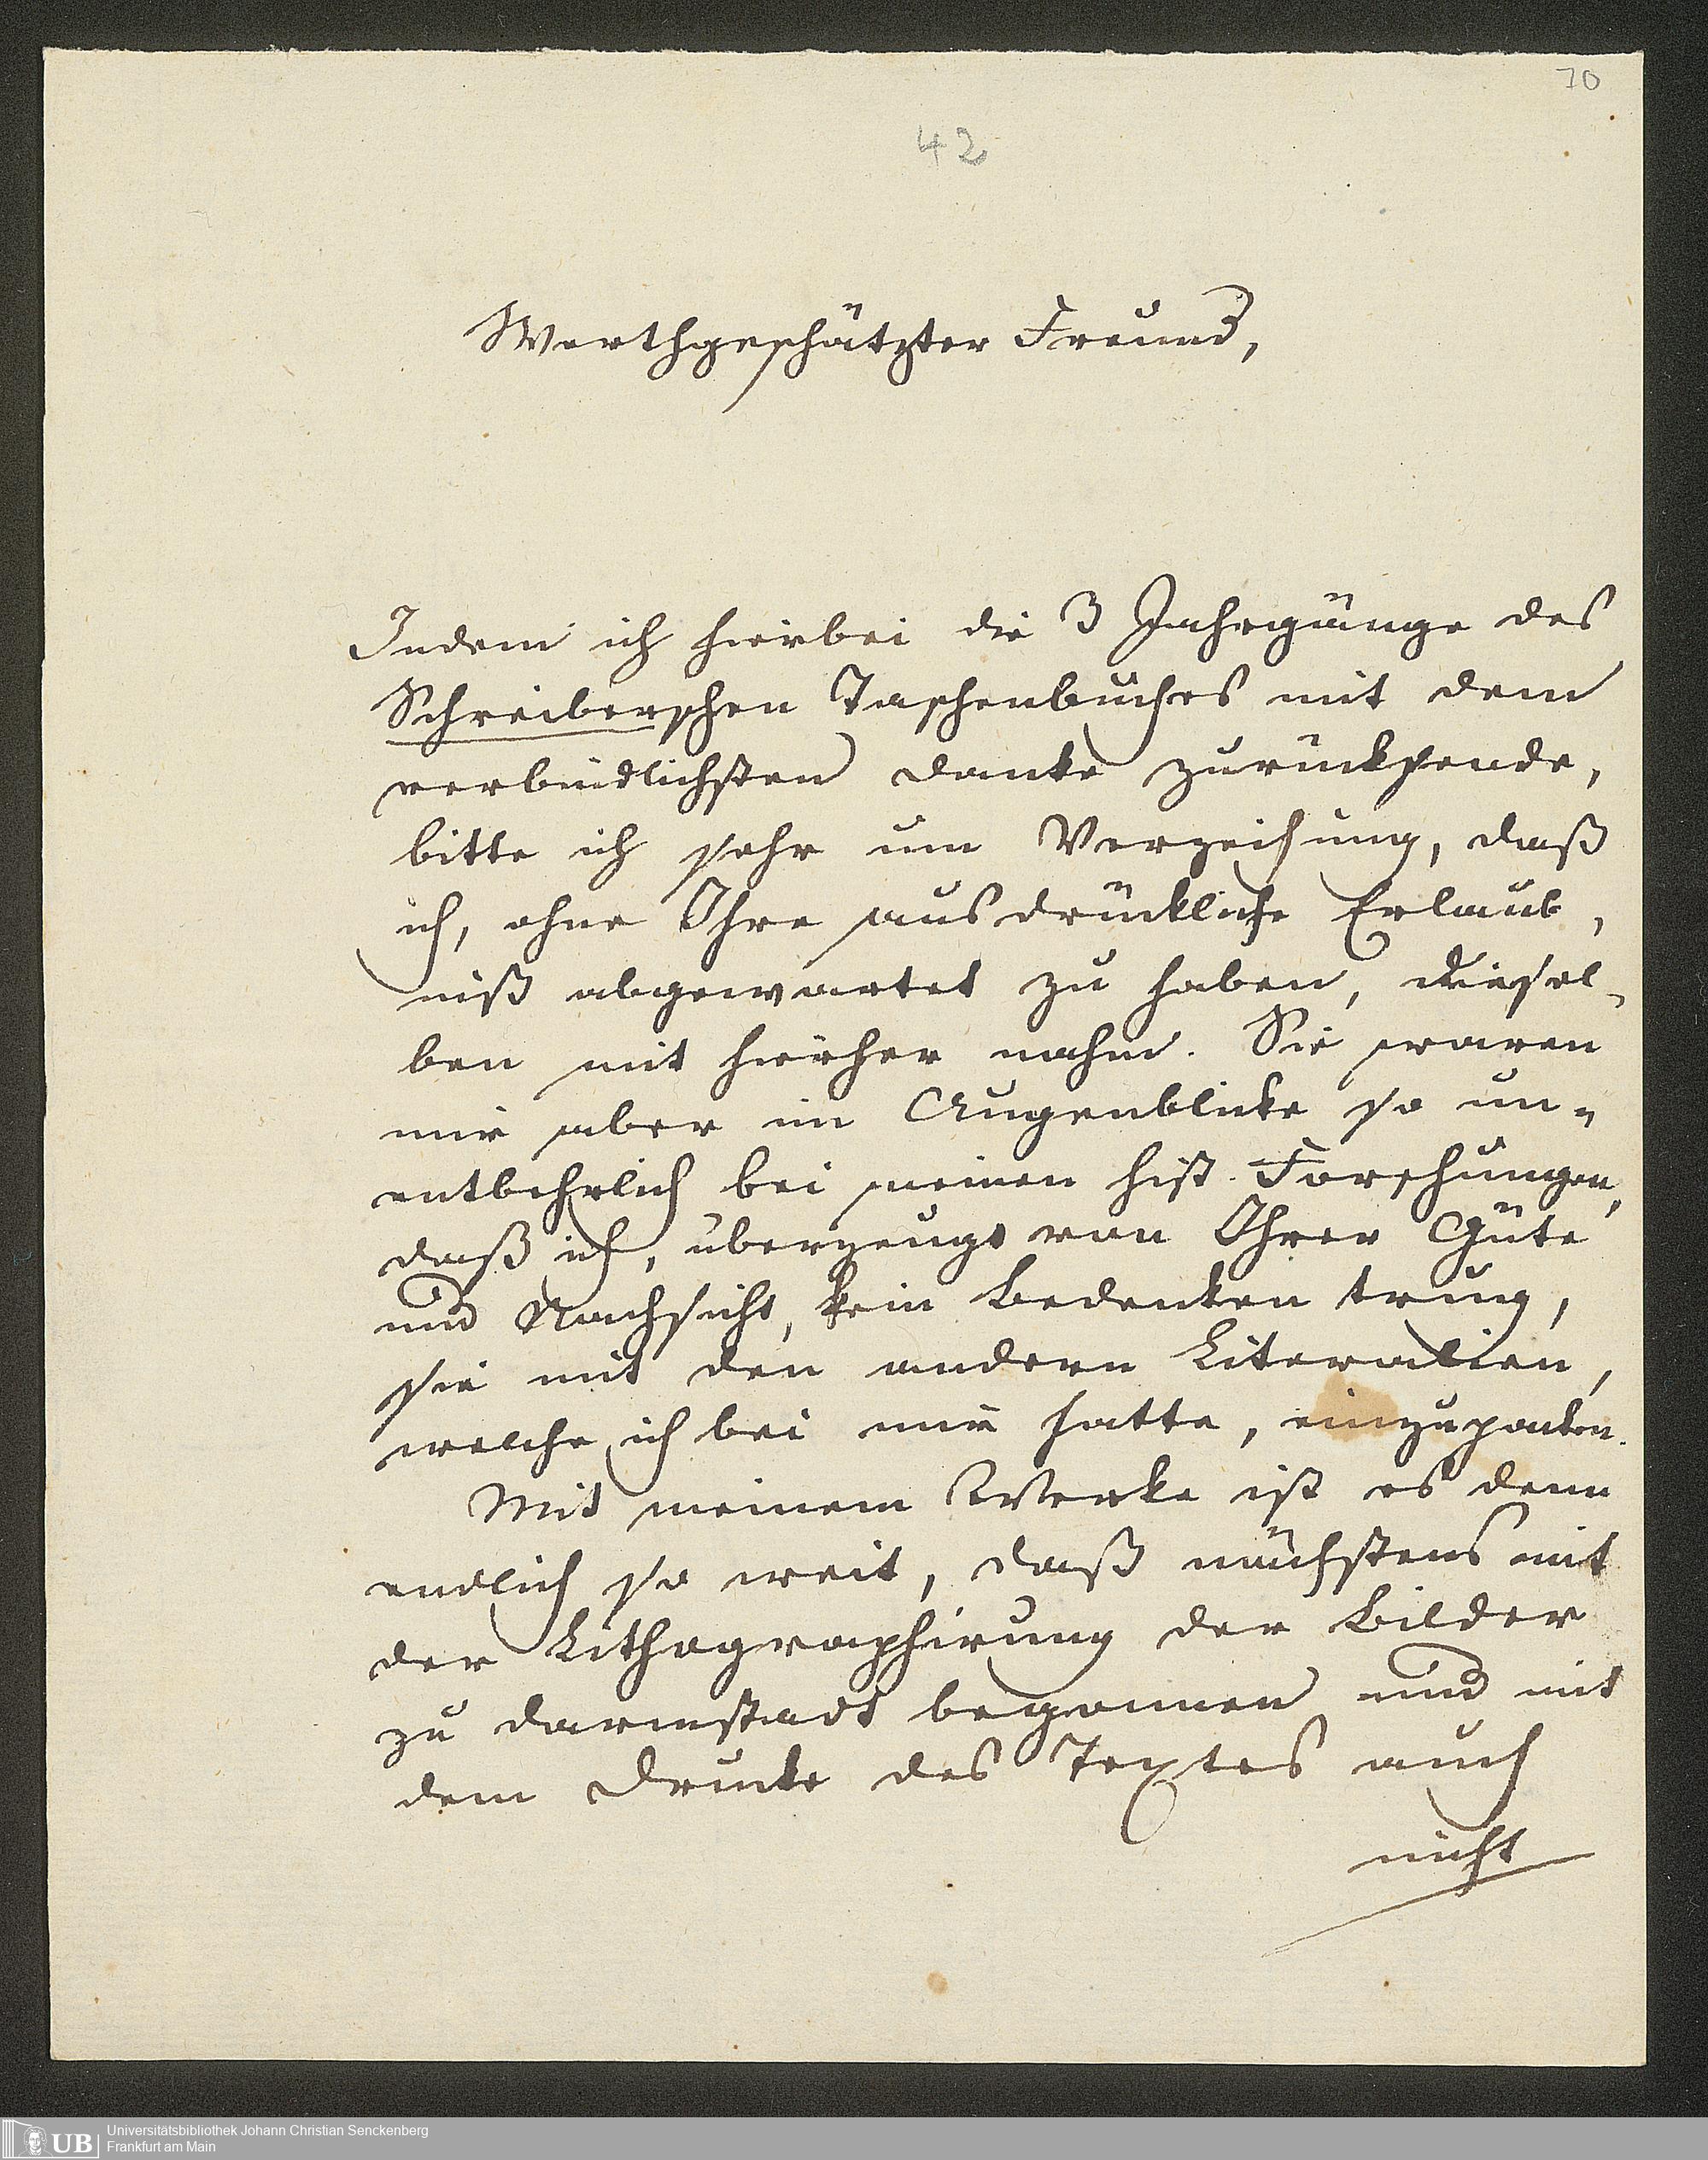 70
42
Werthgeschätzter Freund,
Indem ich hierbei die 3 Jahrgänge des
Schreiberschen Taschenbuches mit dem
verbindlichsten Danke zurücksende,
bitte ich sehr um Verzeihung, daß
ich, ohne Ihre ausdrückliche Erlaub-
niß abgewartet zu haben, diesel-
ben mit hierher nahm. Sie waren
mir aber im Augenblicke so un-
entbehrlich bei meinen hist. Forschungen,
daß ich, überzeugt von Ihrer Güte
und Nachsicht, kein Bedenken trug,
sie mit den andern Literalien,
welche ich bei mir hatte, einzupacken.
Mit meinem Werke ist es denn
endlich so weit, daß nächstens mit
der Lithographirung der Bilder
zu Darmstadt begonnen und mit
dem Drucke des Textes auch
nicht
UB
Universitätsbibliothek Johann Christian Senckenberg
Frankfurt am Main